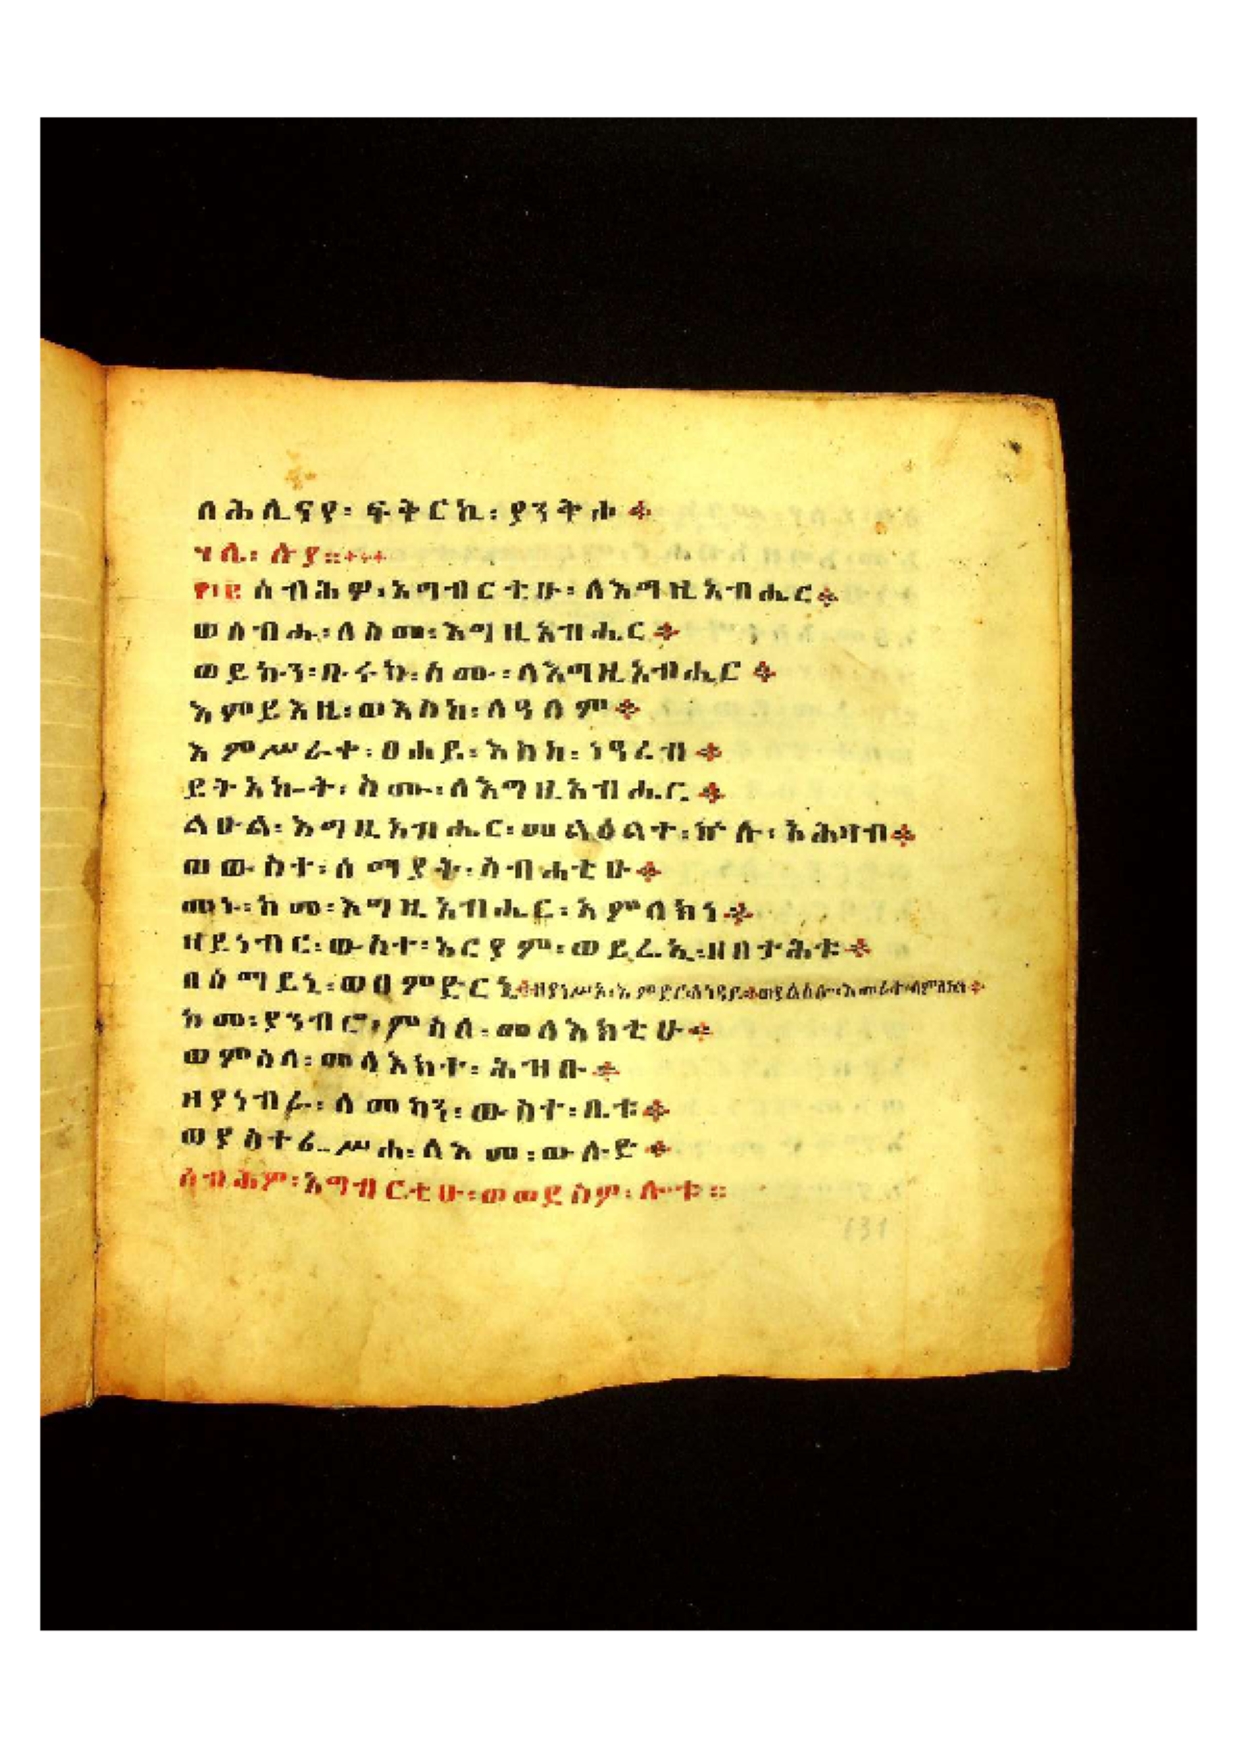 ለሕሊናየ፡ ፍቅርኪ፡ ያንቅህ፨
ሃሌ፡ ሉያ።
፻፲፪ ሰብሕዎ፡ አግብርቲሁ፡ ለእግዚአብሔር፨
ወሰብሑ፡ ለስመ፡ እግዚአብሔር፨
ወይኩን፡ ቡሩከ፡ ስሙ፡ ለእግዚአብሔር፨
እምይእዜ፡ ወእስከ፡ ለዓለም፨
እምሥራቀ፡ ፀሐይ፡ እስከ፡ ነዓረብ፨
ይትአኰት፡ ስሙ፡ ለእግዚአብሔር፨
ልዑል፡ እግዚአብሔር፡ መልዕልተ፡ ኵሉ፡ አሕዛብ፨
ወውስተ፡ ሰማያት፡ ስብሐቲሁ፨
መኑ፡ ከመ፡ እግዚአብሔር፡ አምላክነ፨
ዘይነብር፡ ውስተ፡ አርያም፡ ወይሬኢ፡ ዘበታሕቱ፨
በሰማይኒ፡ ወበምድርኒ፨ ዘያነሥኦ፡ እምድር፡ ለነዳይ፨
ከመ፡ ያንብሮ፡ ምስለ፡ መላእክቲሁ፨
ወምስለ፡ መላእክተ፡ ሕዝቡ፨
ዘያነብራ፡ ለመካን፡ ውስተ፡ ቤቱ፨
ወያስተፌሥሓ፡ ለእመ፡ ውሉድ፨
ሰብሕዎ፡ አግብርቲሁ፡ ወ ሎቱ።